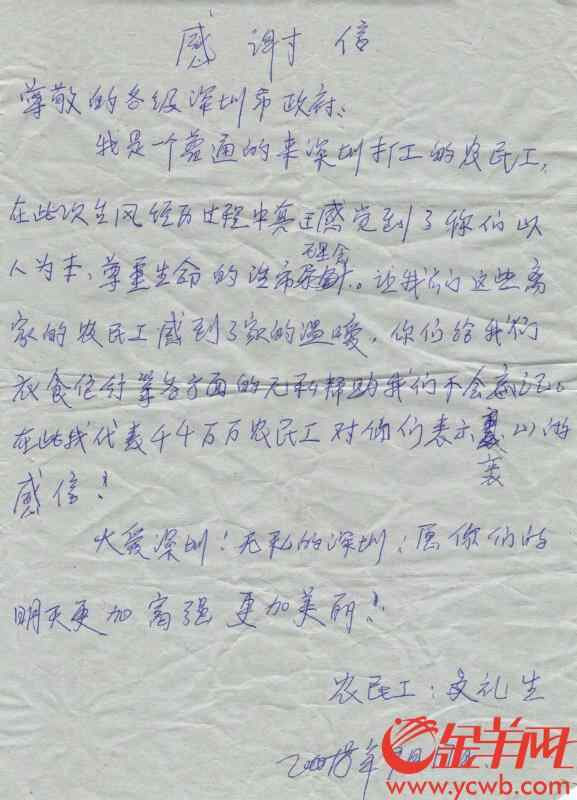 感谢信
尊敬的各级深圳市政府:
我是一个普通的来深圳打工的农民工,
在此次台风经历过程中真正感觉到了你们以
人为本、尊重生命的。让我们这些离
家的农民工感到了家的温暖,你们给我们
衣食住行等各方面的无私帮助我们不会忘记。
在此我代表千千万万农民工对你们表示衷心的
感信!
大爱深圳!无私的深圳!愿你们的
明天更加富强更加美丽!
农民工:文礼生
年月日
金羊网
www.ycwb.com